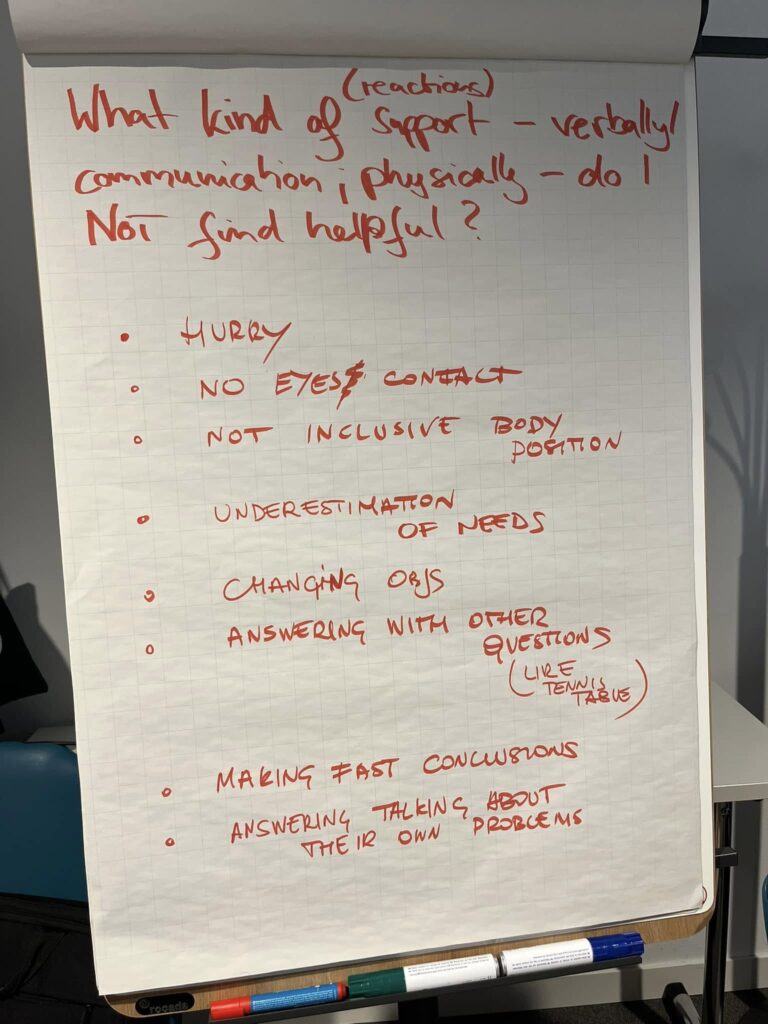 (reactions)
What kind of support – verbally/
communication; physically – do I
NOT find helpful?
• HURRY
• NO EYES CONTACT
• NOT INCLUSIVE BODY
POSITION
• UNDERESTIMATION
OF NEEDS
• CHANGING OBJS
• ANSWERING WITH OTHER
QUESTIONS
(LIKE
TENNIS
TABLE)
• MAKING FAST CONCLUSIONS
• ANSWERING TALKING ABOUT
THEIR OWN PROBLEMS
rocada